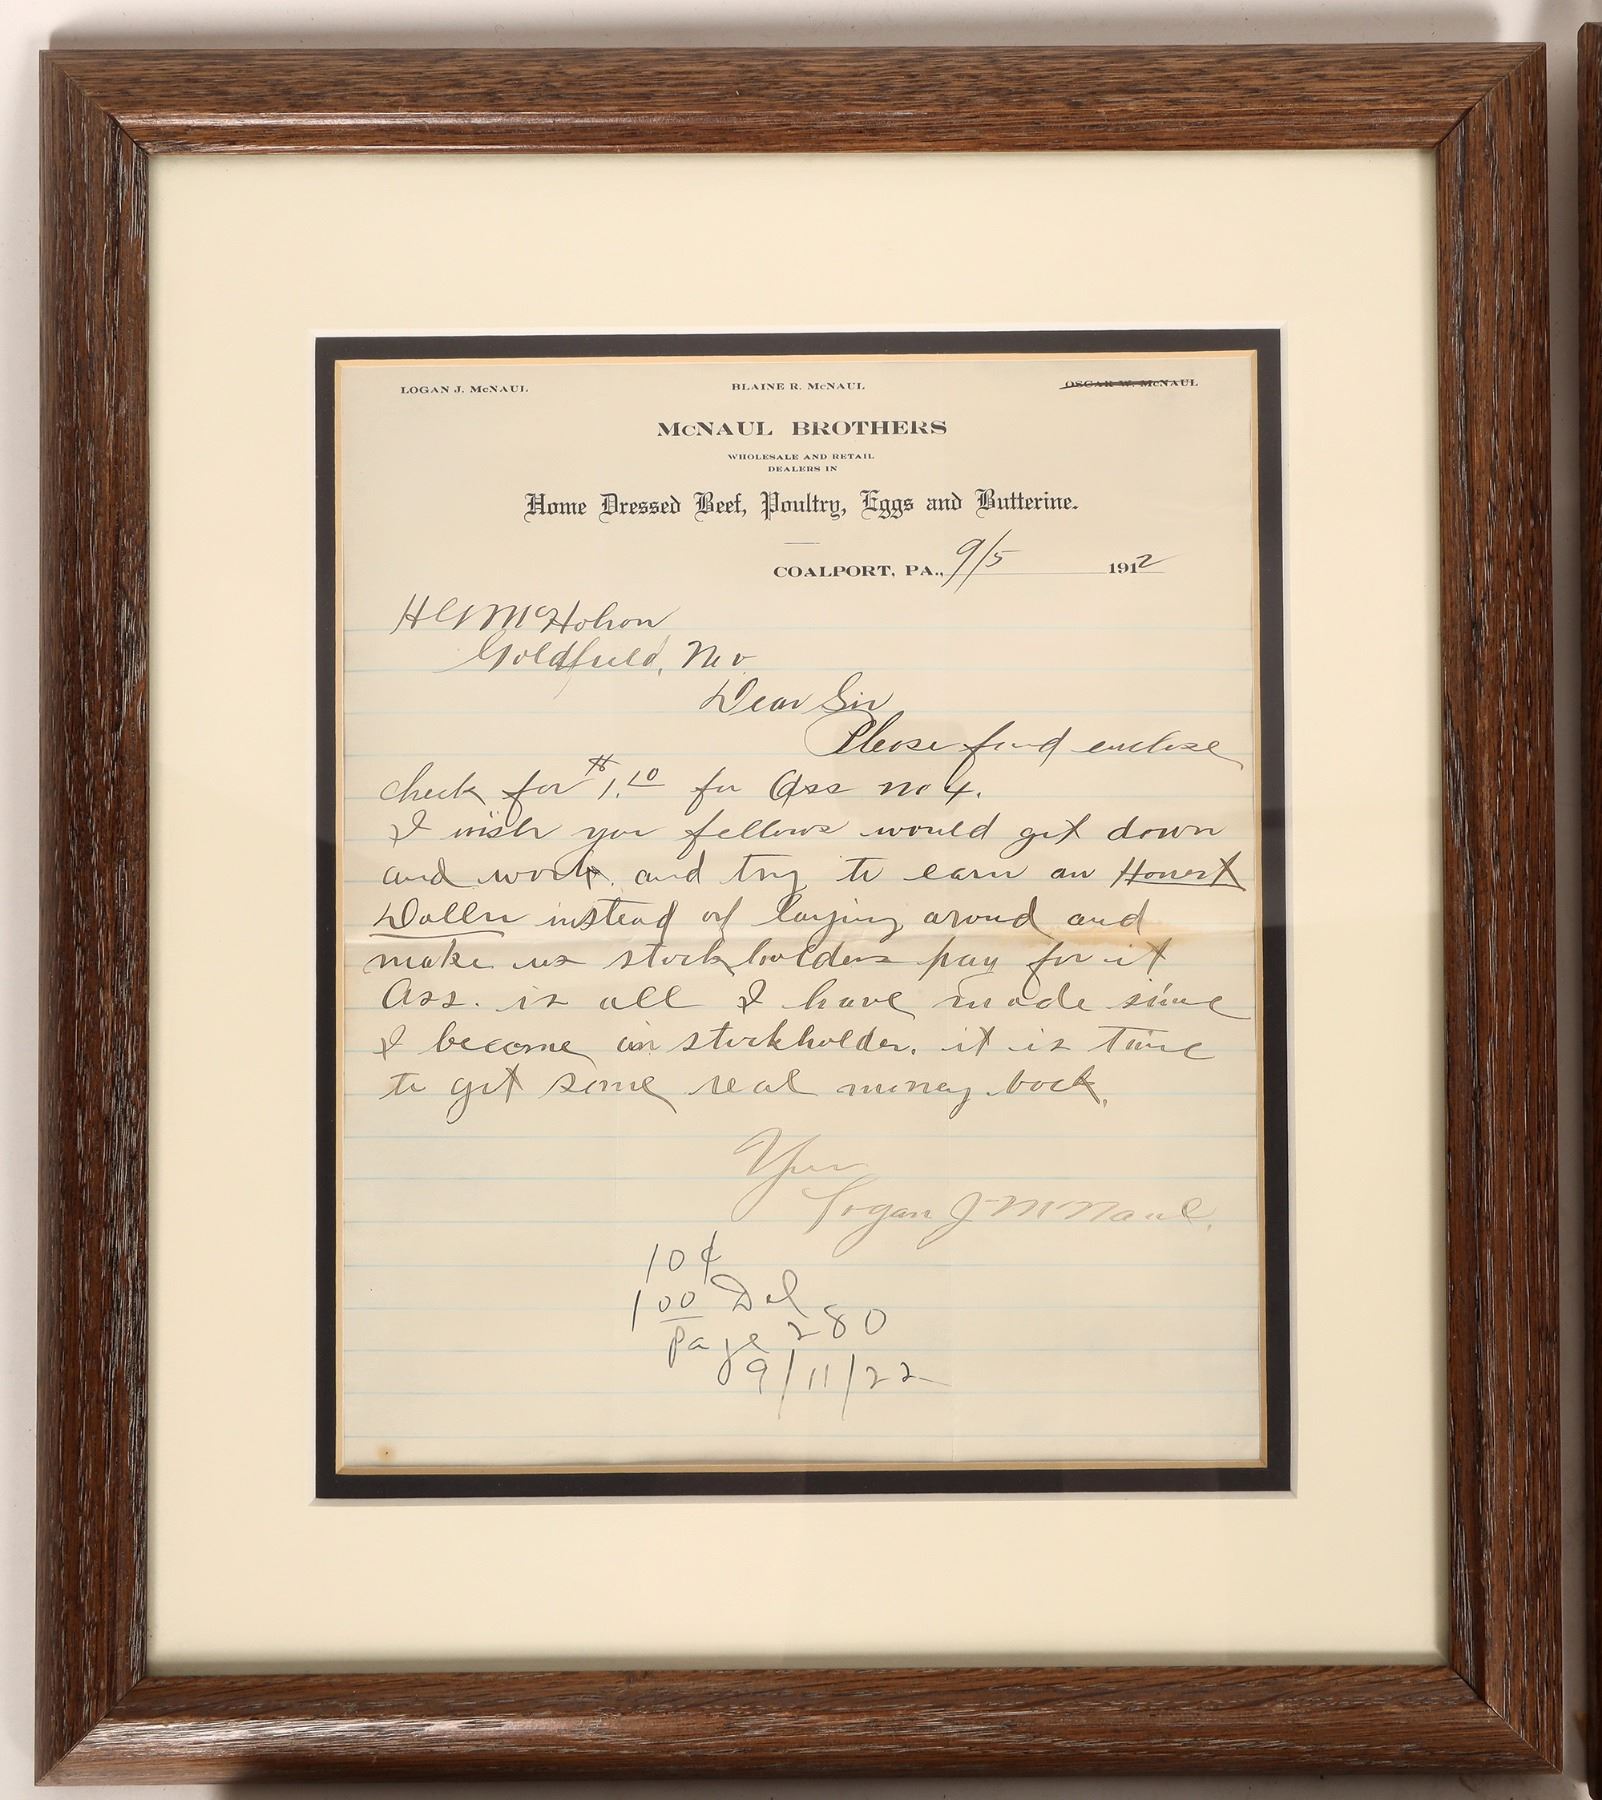 LOGAN J. McNAUL BLAINE R. McNAUL OSCAR W. McNAUL
McNAUL BROTHERS
WHOLESALE AND RETAIL
DEALERS IN
Home Dressed Beef, Poultry, Eggs and Butterine.
COALPORT, PA., 9/5 1912
Goldfield, Nev
Dear Sir
Please find enclose
check for $1.10 for Ass no 4.
I wish you fellows would get down
and work. and try to earn an Honest
Doller instead of laying around and
make us stockholders pay for it
Ass. is all I have made since
I become an stockholder. it is time
to get some real money back.
Yours
Logan J McNaul.
10¢
1 00 Del
Page 280
9/11/22